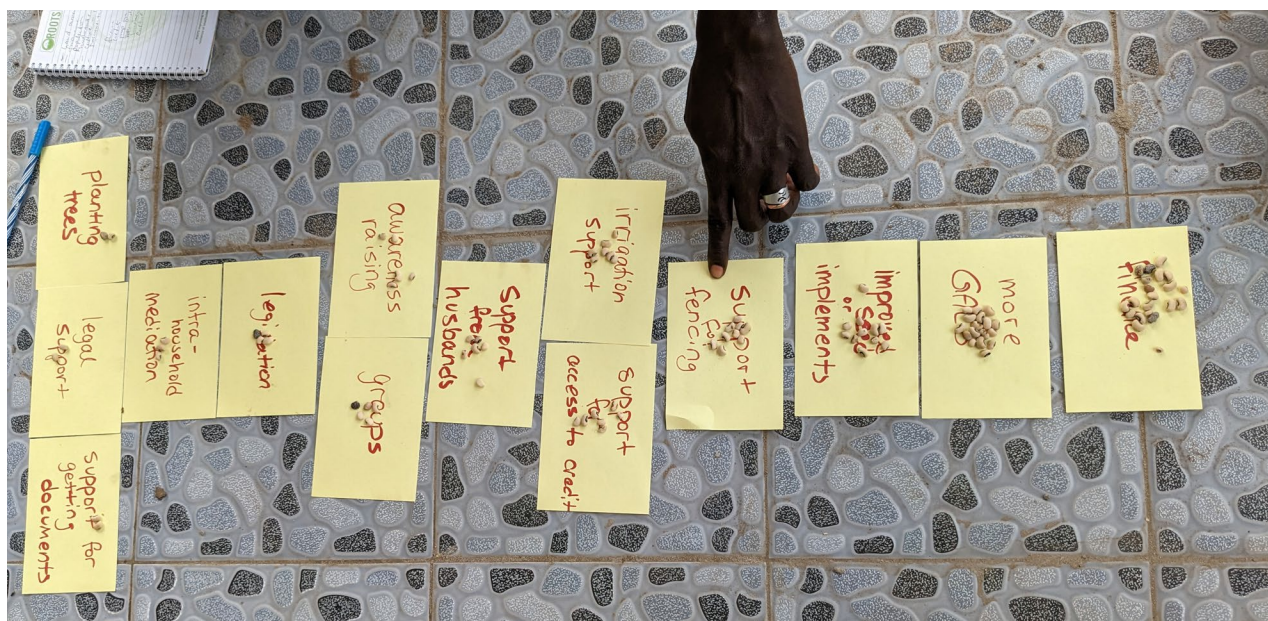 ROOTS
planting
trees
legal
support
support for
getting
documents
intra-
household
mediation
legislation
awareness
raising
groups
Support
from
husbands
irrigation
support
support
for
access to credit
Support
for
fencing
improved
or
implements
more
finance